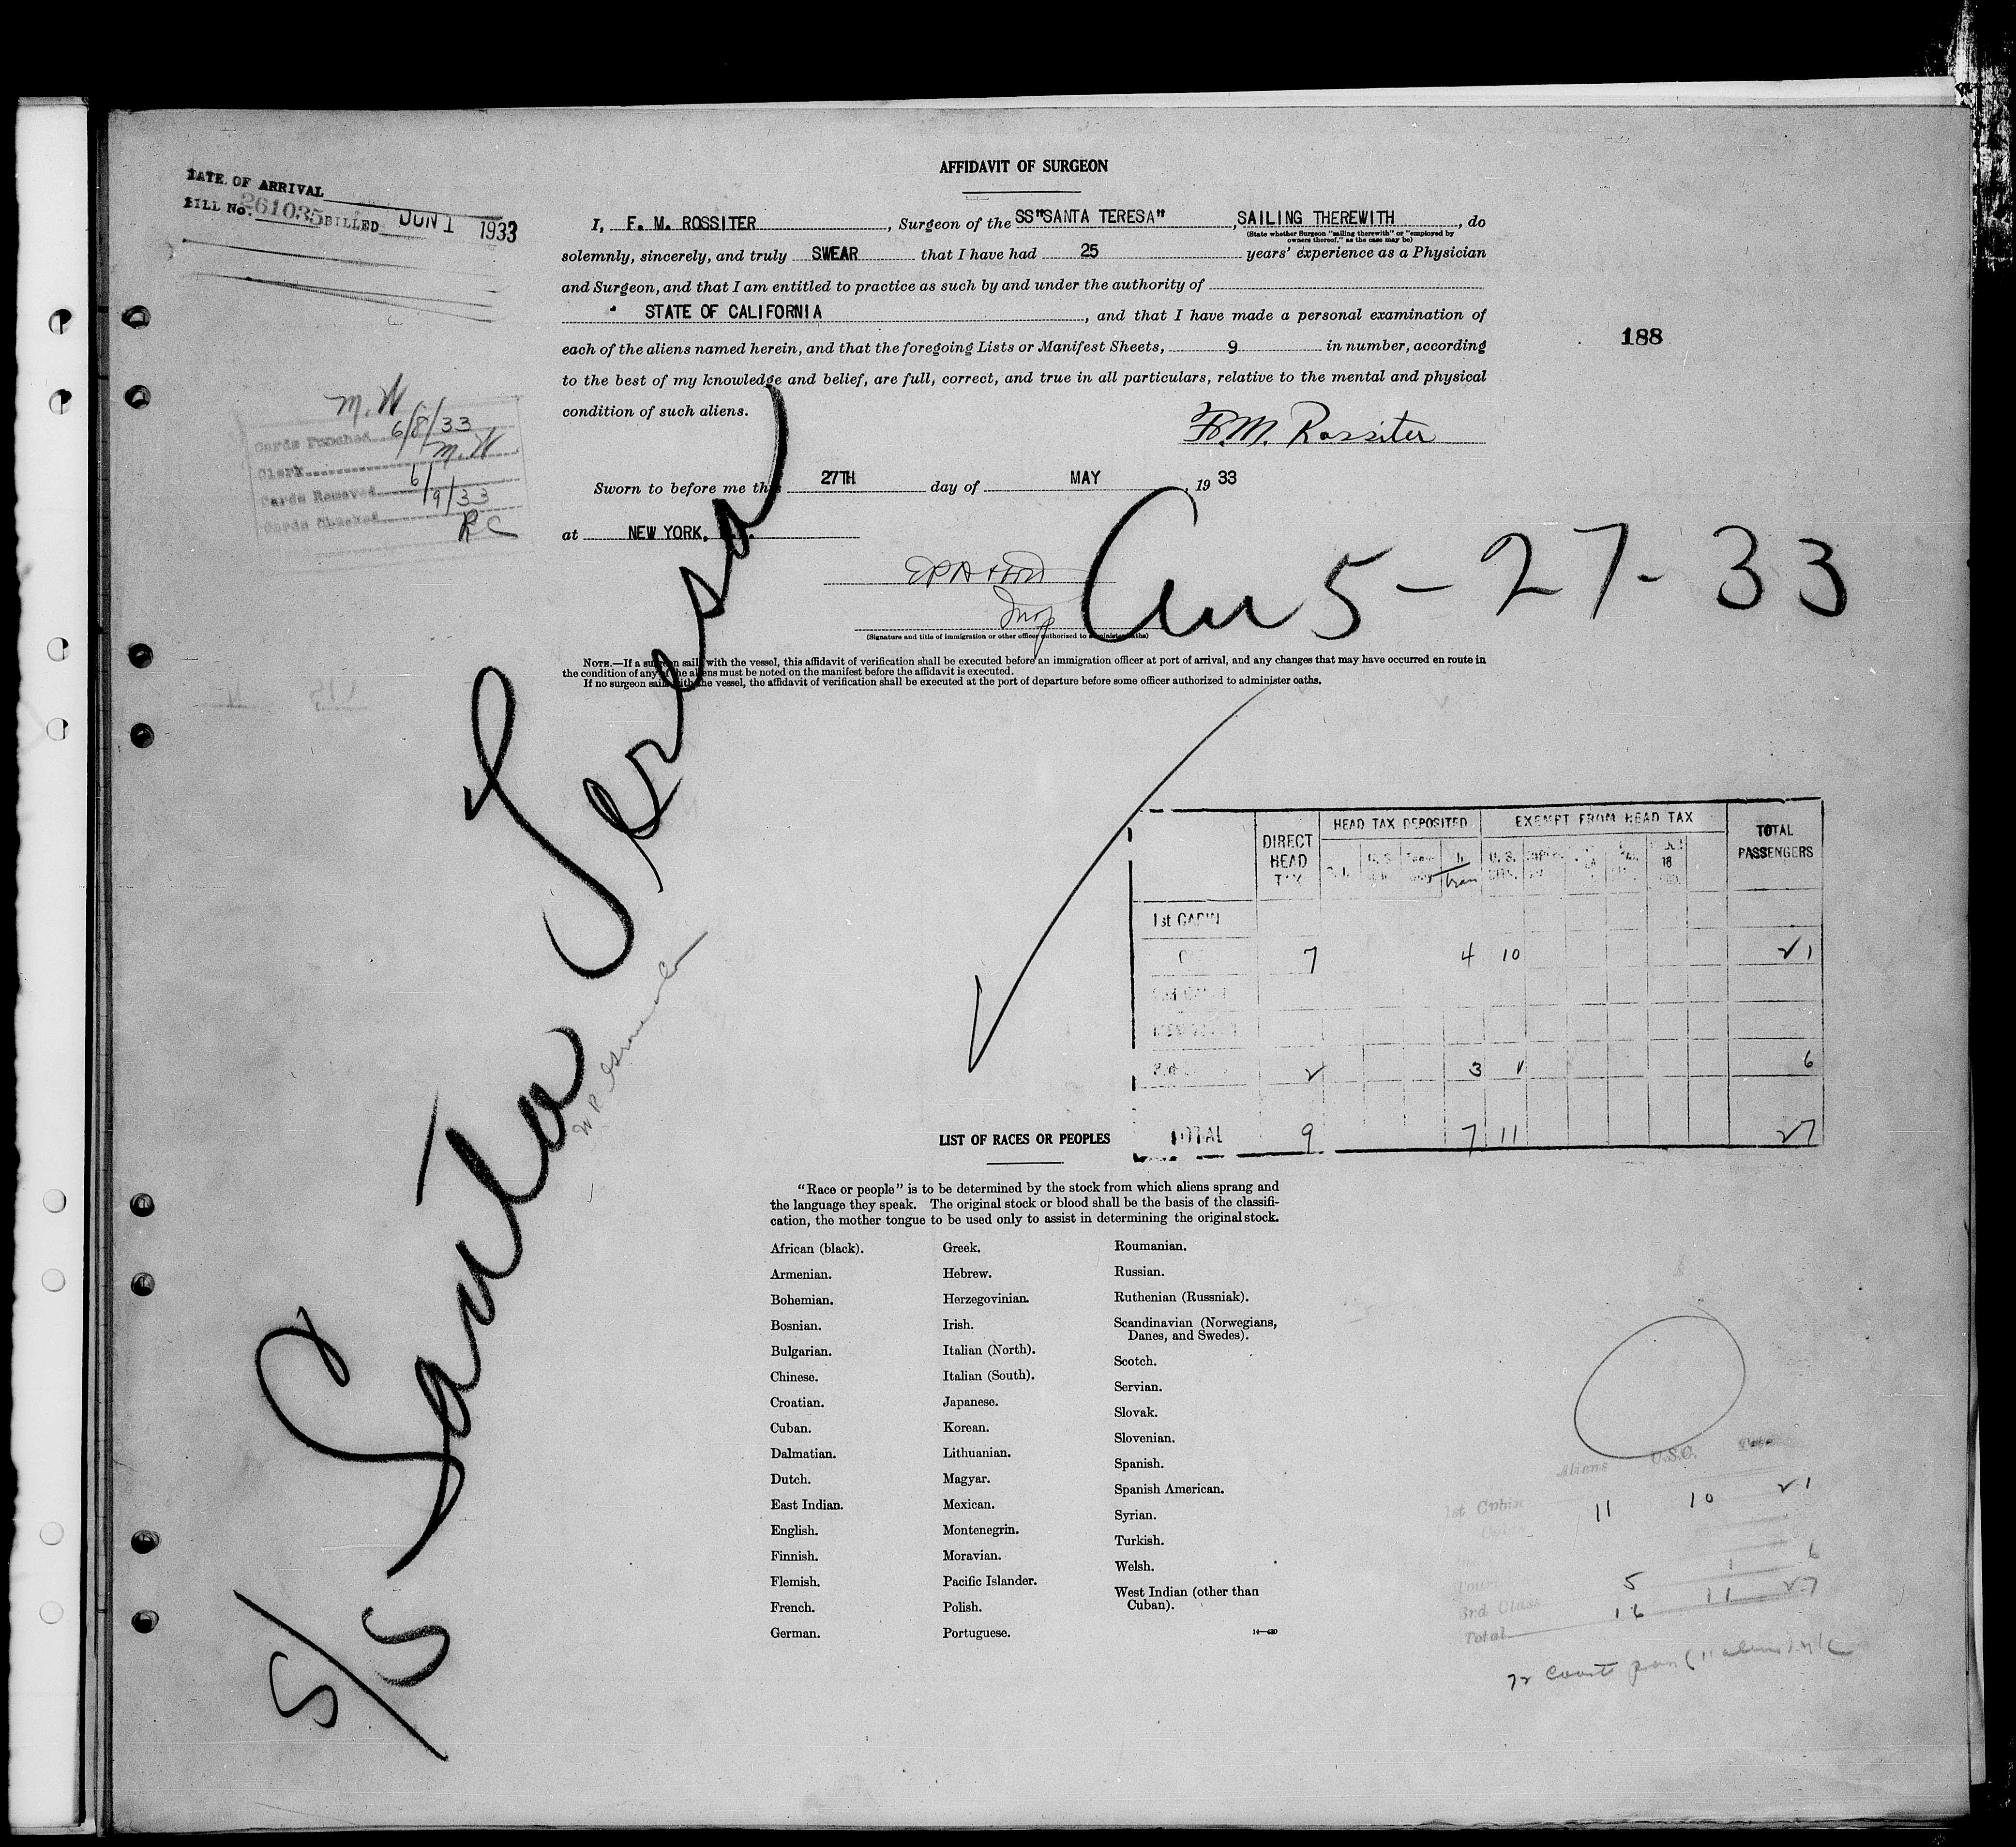 AFFIDAVIT OF SURGEON
DATE OF ARRIVAL
BILL No. 261035 BILLED JUN 1 1933
I, F. M. ROSSITER, Surgeon of the SS"SANTA TERESA", SAILING THEREWITH, do
(State whether Surgeon "sailing therewith" or "employed by
owners thereof," as the case may be)
solemnly, sincerely, and truly SWEAR that I have had 25 years' experience as a Physician
and Surgeon, and that I am entitled to practice as such by and under the authority of
STATE OF CALIFORNIA, and that I have made a personal examination of
each of the aliens named herein, and that the foregoing Lists or Manifest Sheets, 9 in number, according
to the best of my knowledge and belief, are full, correct, and true in all particulars, relative to the mental and physical
condition of such aliens.
188
F.M. Rossiter
M.W
Cards Punched 6/8/33
Clerk M.W
Cards Removed 6/9/33
Cards Checked RC
Sworn to before me this 27TH day of MAY, 1933
at NEW YORK,
Insp
Arr 5-27-33
(Signature and title of immigration or other officer authorized to administer oaths)
NOTE.—If a surgeon sails with the vessel, this affidavit of verification shall be executed before an immigration officer at port of arrival, and any changes that may have occurred en route in
the condition of any of the aliens must be noted on the manifest before the affidavit is executed.
If no surgeon sails with the vessel, the affidavit of verification shall be executed at the port of departure before some officer authorized to administer oaths.
S/S Santa Teresa
DIRECT HEAD TAX
HEAD TAX DEPOSITED
EXEMPT FROM HEAD TAX
TOTAL PASSENGERS
U. S.
Tran
18
1st CABIN
7 4 10 21
2 3 1 6
TOTAL 9 7 11 27
LIST OF RACES OR PEOPLES
"Race or people" is to be determined by the stock from which aliens sprang and
the language they speak. The original stock or blood shall be the basis of the classifi-
cation, the mother tongue to be used only to assist in determining the original stock.
African (black).
Armenian.
Bohemian.
Bosnian.
Bulgarian.
Chinese.
Croatian.
Cuban.
Dalmatian.
Dutch.
East Indian.
English.
Finnish.
Flemish.
French.
German.
Greek.
Hebrew.
Herzegovinian.
Irish.
Italian (North).
Italian (South).
Japanese.
Korean.
Lithuanian.
Magyar.
Mexican.
Montenegrin.
Moravian.
Pacific Islander.
Polish.
Portuguese.
Roumanian.
Russian.
Ruthenian (Russniak).
Scandinavian (Norwegians,
Danes, and Swedes).
Scotch.
Servian.
Slovak.
Slovenian.
Spanish.
Spanish American.
Syrian.
Turkish.
Welsh.
West Indian (other than
Cuban).
Aliens U.S.C.
1st Cabin 11 10 21
5 1 6
3rd Class
Total 16 11 27